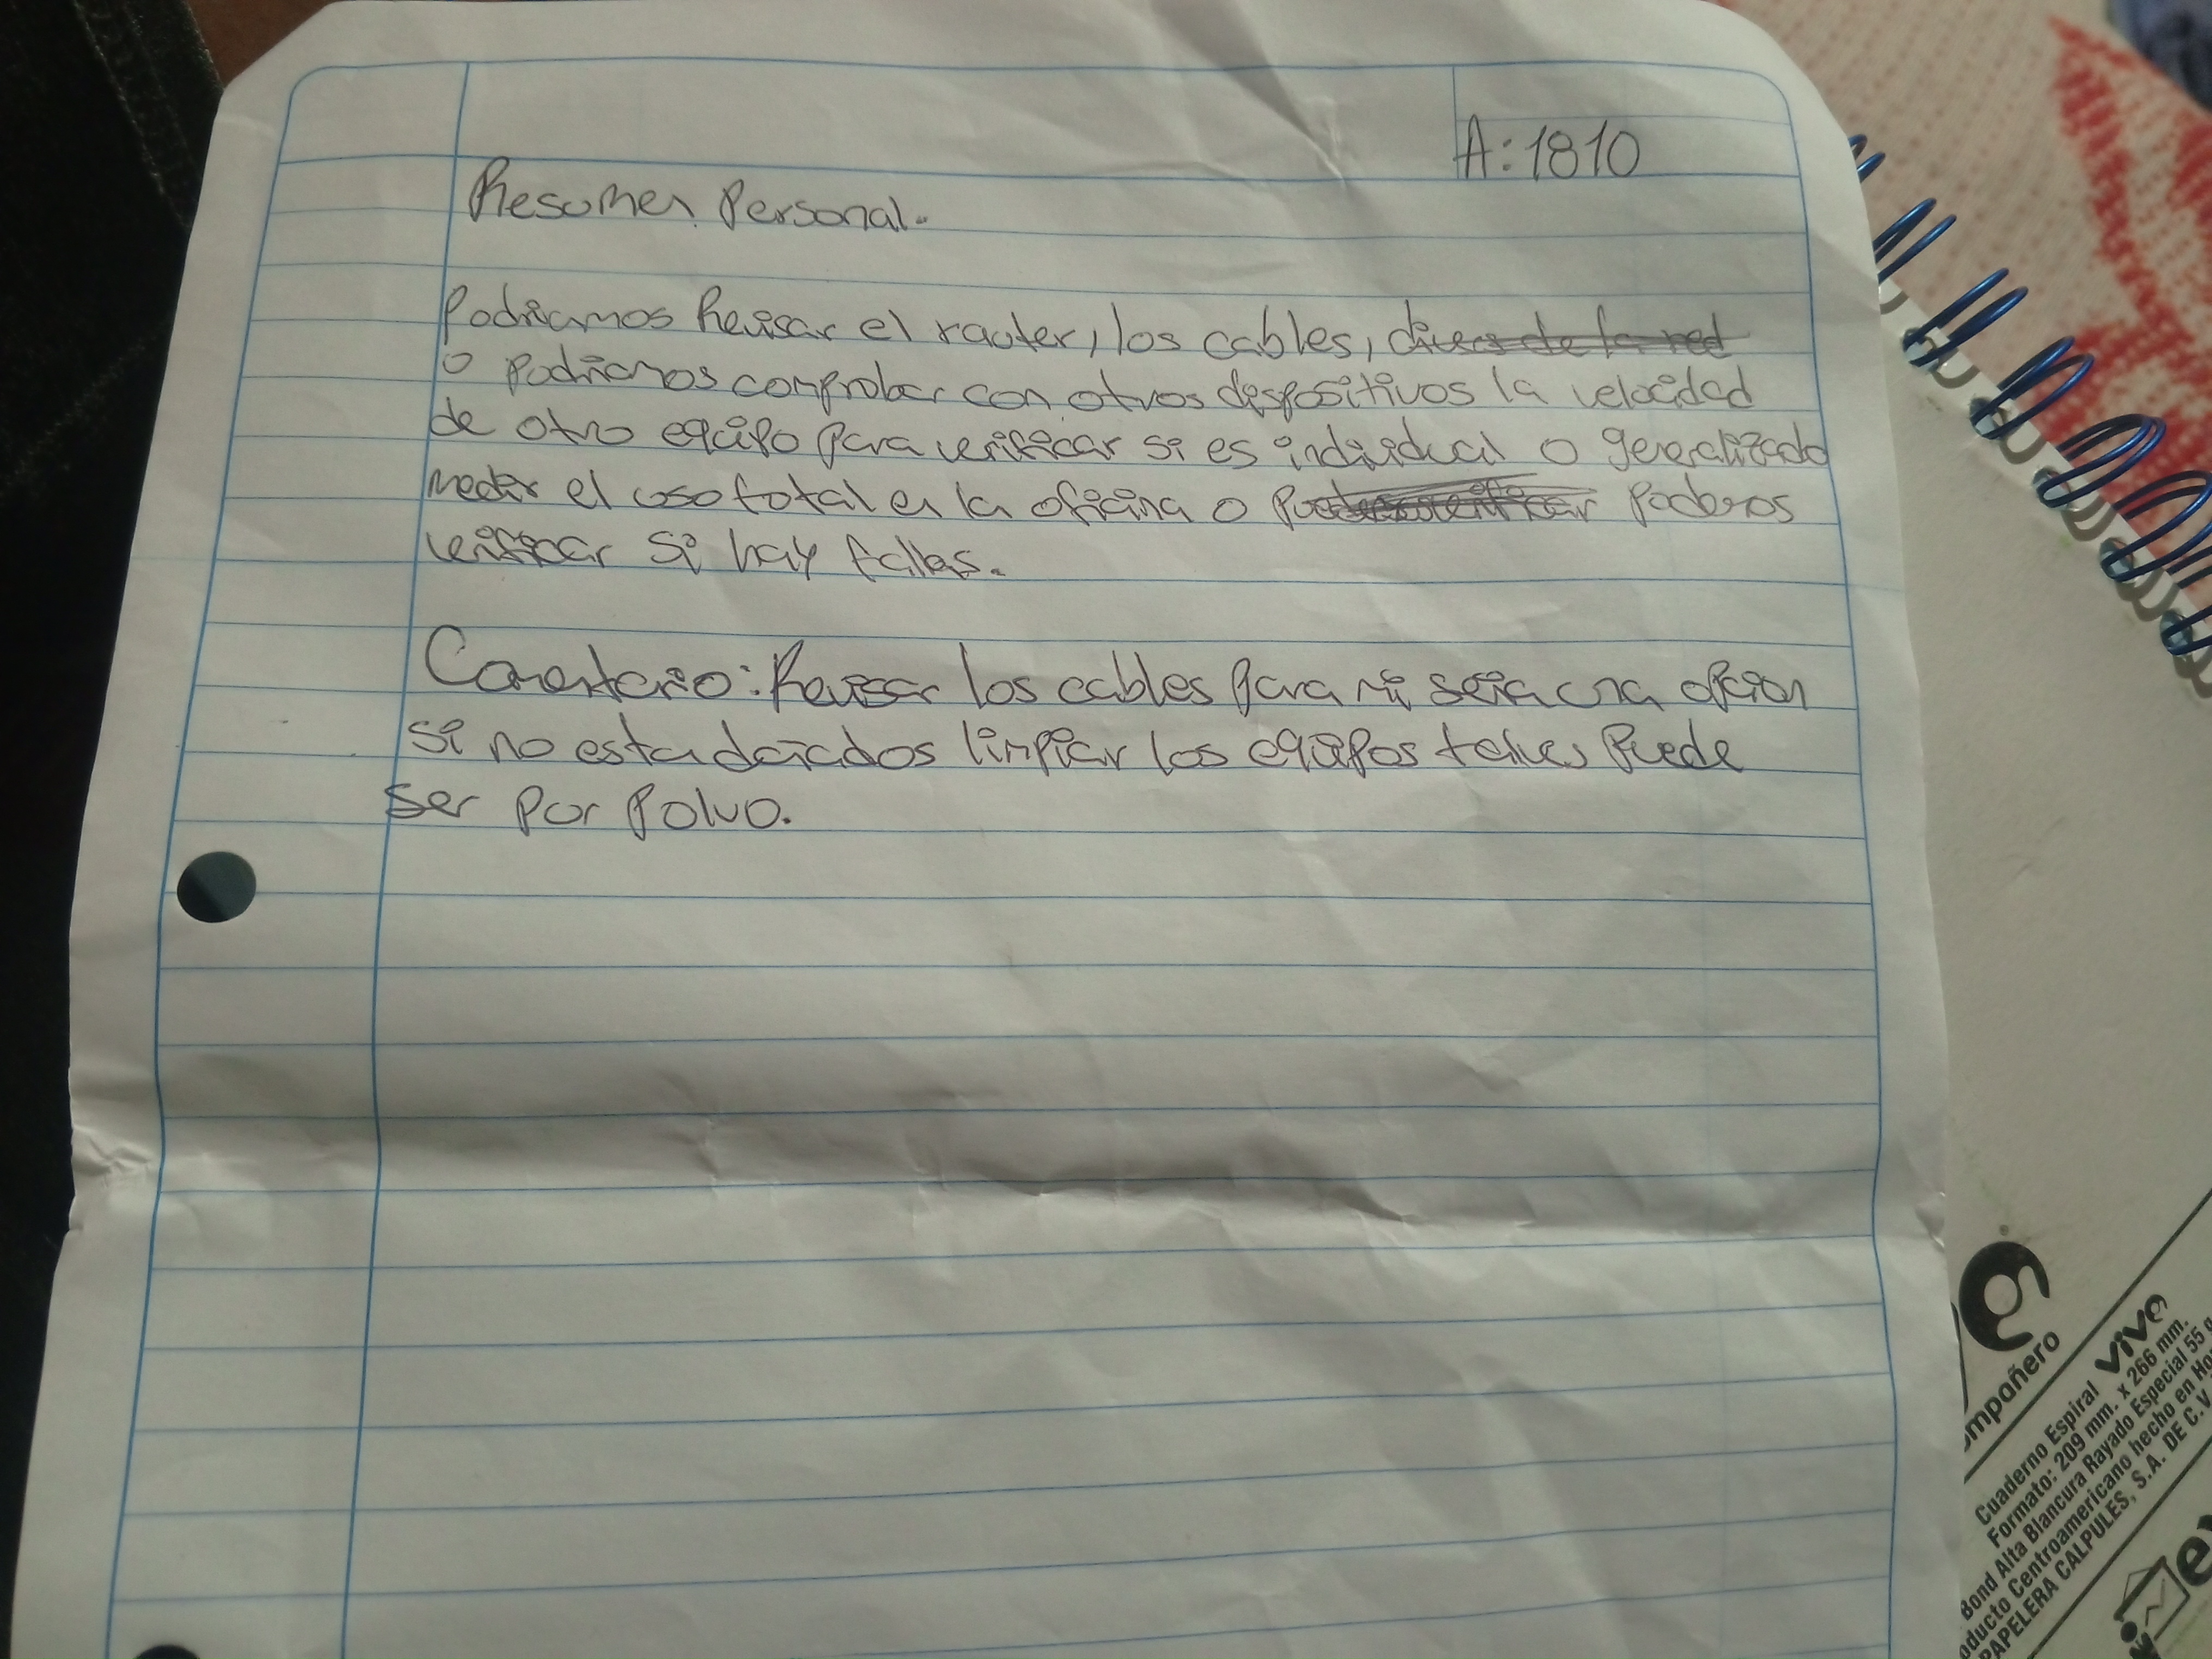 A:1810
Resumen Personal.
Podriamos Revisar el rauter, los cables,
o podriamos comprobar con otros dispositivos la velocidad
de otro equipo para verificar si es individual o generalizado
medir el uso total en la oficina o podemos
verificar si hay fallas.
Comentario: Revisar los cables para mi seria una opcion
si no esta dañados limpiar los equipos talves Puede
ser por Polvo.
ompañero
Cuaderno Espiral vive
Formato: 209 mm. x 266 mm.
Bond Alta Blancura Rayado Especial 55 g
oducto Centroamericano hecho en Ho
PAPELERA CALPULES, S.A. DE C.V.